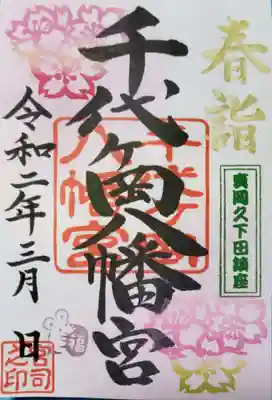 春詣
真岡久下田鎮座
千代ヶ岡八幡宮
千代ヶ岡八幡宮
令和二年三月 日
福
宮司之印